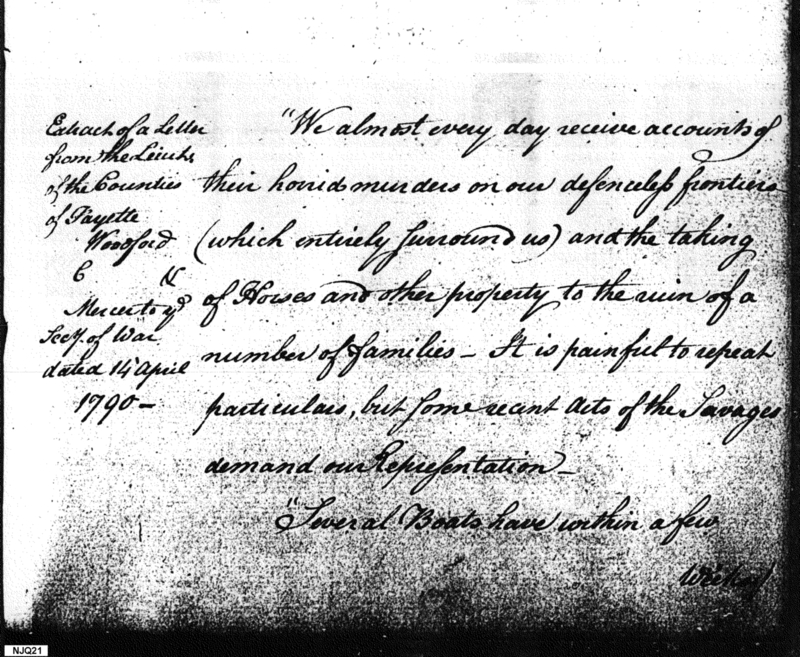 Extract of a Letter
from the Lieuts.
of the Counties
of Fayette
Woodford
&
Mercer to ye
Secy. of War
dated 14 April
1790 —
"We almost every day receive accounts of
their horrid murders on our defenceless frontiers
(which entirely surround us) and the taking
of Horses and other property to the ruin of a
number of families — It is painful to repeat
particulars, but some recent Acts of the Savages
demand our Representation —
"Several Boats have within a few
Weeks
NJQ21